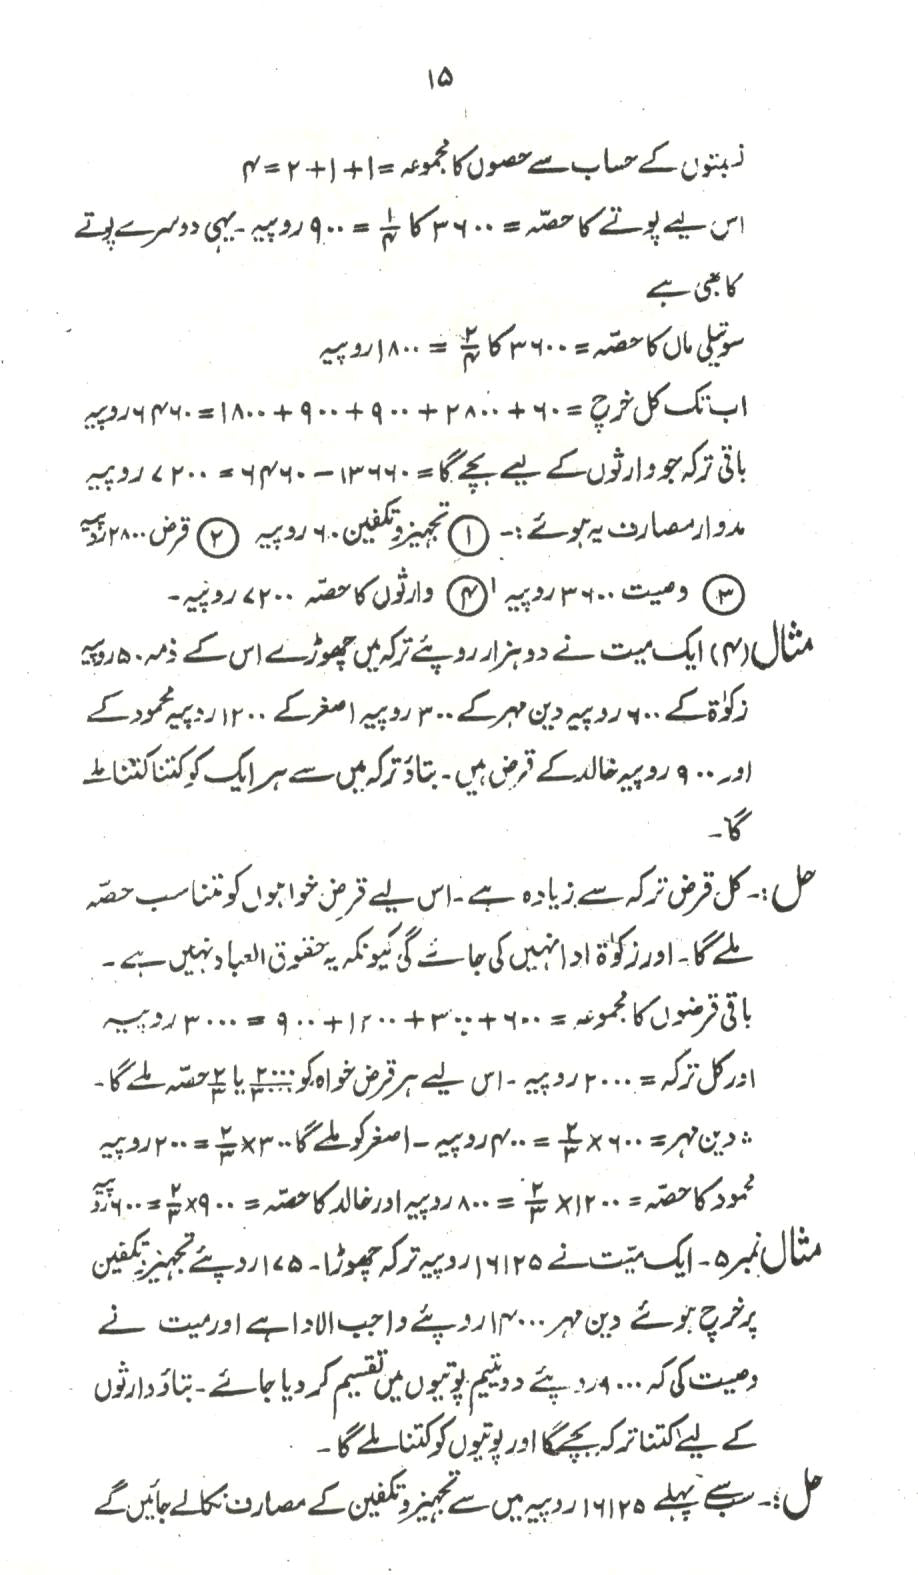 ۱۵
نسبتوں کے حساب سے حصوں کا مجموعہ = ۱ + ۱ + ۲ = ۴
اس لیے پوتے کا حصّہ = ۳۶۰۰ کا ۱/۴ = ۹۰۰ روپیہ ۔ یہی دوسرے پوتے
کا بھی ہے
سوتیلی ماں کا حصّہ = ۳۶۰۰ کا ۲/۴ = ۱۸۰۰ روپیہ
اب تک کل خرچ = ۶۰ + ۲۸۰۰ + ۹۰۰ + ۹۰۰ + ۱۸۰۰ = ۶۴۶۰ روپیہ
باقی ترکہ جو وارثوں کے لیے بچے گا = ۱۳۶۶۰ – ۶۴۶۰ = ۷۲۰۰ روپیہ
مدوار مصارف یہ ہوئے :۔ (۱) تجہیز و تکفین ۶۰ روپیہ (۲) قرض ۲۸۰۰ روپیہ
(۳) وصیت ۳۶۰۰ روپیہ (۴) وارثوں کا حصّہ ۷۲۰۰ روپیہ ۔
مثال (۴) ایک میت نے دو ہزار روپئے ترکہ میں چھوڑے اس کے ذمہ ۵۰ روپیہ
زکوٰۃ کے ۶۰۰ روپیہ دین مہر کے ۳۰۰ روپیہ اصغر کے ۱۲۰۰ روپیہ محمود کے
اور ۹۰۰ روپیہ خالد کے قرض ہیں ۔ بتاؤ ترکہ میں سے ہر ایک کو کتنا کتنا ملے
گا ۔
حل :۔ کل قرض ترکہ سے زیادہ ہے ۔ اس لیے قرض خواہوں کو متناسب حصّہ
ملے گا ۔ اور زکوٰۃ ادا نہیں کی جائے گی کیونکہ یہ حقوق العباد نہیں ہے ۔
باقی قرضوں کا مجموعہ = ۶۰۰ + ۳۰۰ + ۱۲۰۰ + ۹۰۰ = ۳۰۰۰ روپیہ
اور کل ترکہ = ۲۰۰۰ روپیہ ۔ اس لیے ہر قرض خواہ کو ۲۰۰۰/۳۰۰۰ یا ۲/۳ حصّہ ملے گا ۔
∴ دین مہر = ۶۰۰ × ۲/۳ = ۴۰۰ روپیہ ۔ اصغر کو ملے گا ۳۰۰ × ۲/۳ = ۲۰۰ روپیہ
محمود کا حصّہ = ۱۲۰۰ × ۲/۳ = ۸۰۰ روپیہ اور خالد کا حصّہ = ۹۰۰ × ۲/۳ = ۶۰۰ روپیہ
مثال نمبر ۵ ۔ ایک میّت نے ۱۶۱۲۵ روپیہ ترکہ چھوڑا ۔ ۱۷۵ روپئے تجہیز و تکفین
پر خرچ ہوئے دین مہر ۱۴۰۰۰ روپئے واجب الادا ہے اور میت نے
وصیت کی کہ ۹۰۰۰ روپئے دو یتیم پوتیوں میں تقسیم کر دیا جائے ۔ بتاؤ وارثوں
کے لیے کتنا ترکہ بچے گا اور پوتیوں کو کتنا ملے گا ۔
حل :۔ سب سے پہلے ۱۶۱۲۵ روپیہ میں سے تجہیز و تکفین کے مصارف نکالے جائیں گے